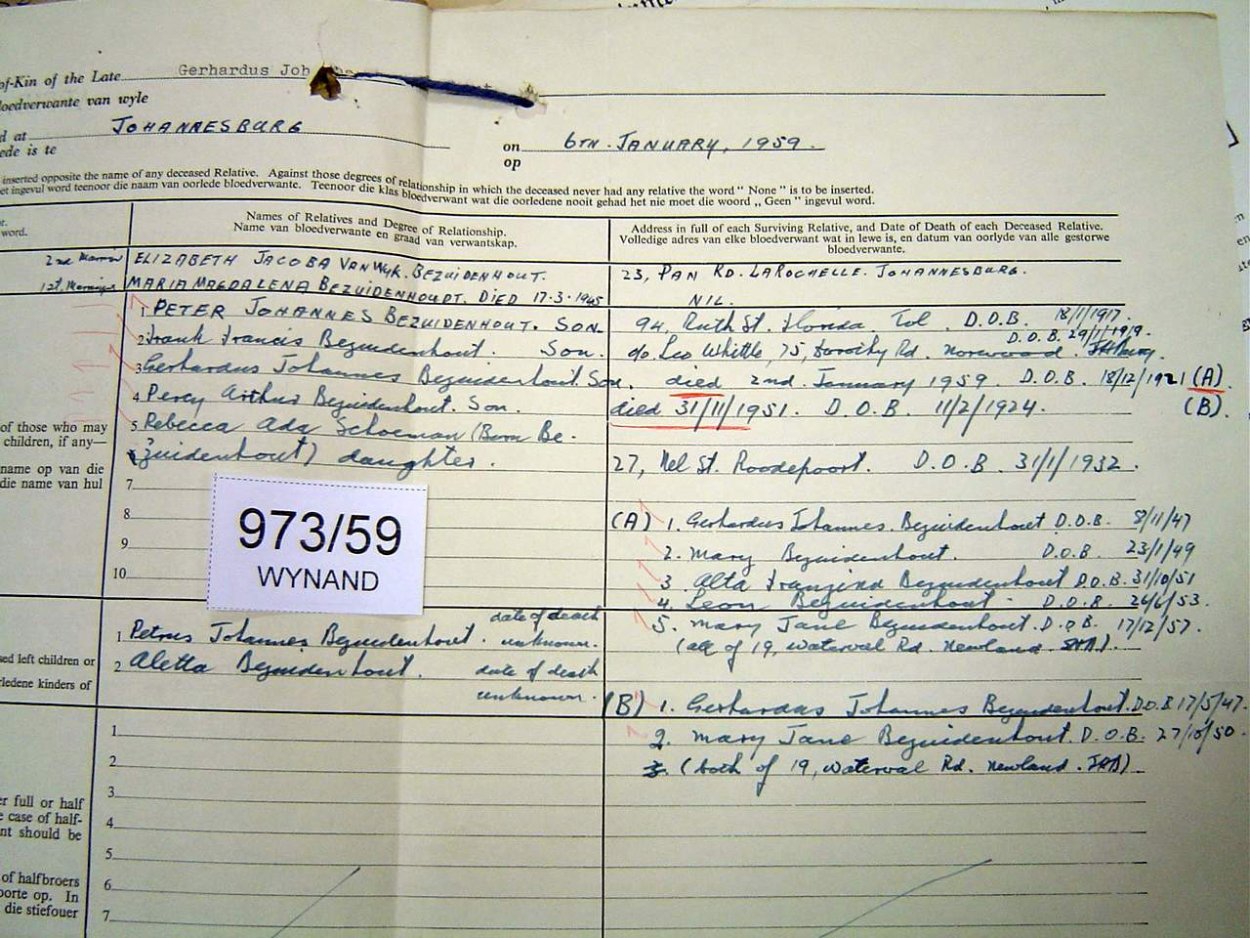 of-Kin of the Late Gerhardus Joh
loedverwante van wyle
d at JOHANNESBURG on 6TH. JANUARY, 1959.
ede is te op
inserted opposite the name of any deceased Relative. Against those degrees of relationship in which the deceased never had any relative the word " None " is to be inserted.
et ingevul word teenoor die naam van oorlede bloedverwante. Teenoor die klas bloedverwant wat die oorledene nooit gehad het nie moet die woord „ Geen " ingevul word.
Names of Relatives and Degree of Relationship.
Naam van bloedverwante en graad van verwantskap.
Address in full of each Surviving Relative, and Date of Death of each Deceased Relative.
Volledige adres van elke bloedverwant wat in lewe is, en datum van oorlyde van alle gestorwe
bloedverwante.
r.
word.
2nd ELIZABETH JACOBA VAN WYK. BEZUIDENHOUT. 23, PAN RD. LAROCHELLE. JOHANNESBURG.
1st. MARIA MAGDALENA BEZUIDENHOUDT. DIED 17.3.1945 NIL.
1. PETER JOHANNES BEZUIDENHOUT. SON 94, Ruth St. Florida. Tvl. D.O.B. 18/1/1917.
2. Frank Francis Bezuidenhout. Son. c/o Leo Whittle, 75, Dorothy Rd. Norwood. D.O.B. 29/1/1919.
3. Gerhardus Johannes Bezuidenhout. Son. died 2nd. January 1959. D.O.B. 18/12/1921 (A)
4. Percy Arthur Bezuidenhout. Son. died 31/11/1951. D.O.B. 11/2/1924. (B).
5. Rebecca Ada Schoeman (Born Be-
zuidenhout) daughter. 27, Nel St. Roodepoort. D.O.B. 31/1/1932.
of those who may
children, if any—
name op van die
die name van hul
7.
8
9.
10.
973/59
WYNAND
(A) 1. Gerhardus Johannes. Bezuidenhout D.O.B. 8/11/47
2. Mary Bezuidenhout. D.O.B. 23/1/49
3. Alta Bezuidenhout D.O.B. 31/10/51
4. Leon Bezuidenhout. D.O.B. 53.
5. Mary Jane Bezuidenhout. D.O.B. 17/12/57.
(all of 19, Waterval Rd. Newland. JHB).
sed left children or
rledene kinders of
1. Petrus Johannes Bezuidenhout. date of death unknown.
2. Aletta Bezuidenhout. date of death unknown.
(B) 1. Gerhardus Johannes Bezuidenhout. D.O.B 17/5/47.
2. Mary Jane Bezuidenhout. D.O.B. 27/10/50.
(both of 19, Waterval Rd. Newland. JHB).
1.
2
3.
4.
5.
6.
7.
er full or half
e case of half-
nt should be
of halfbroers
oorte op. In
die stiefouer